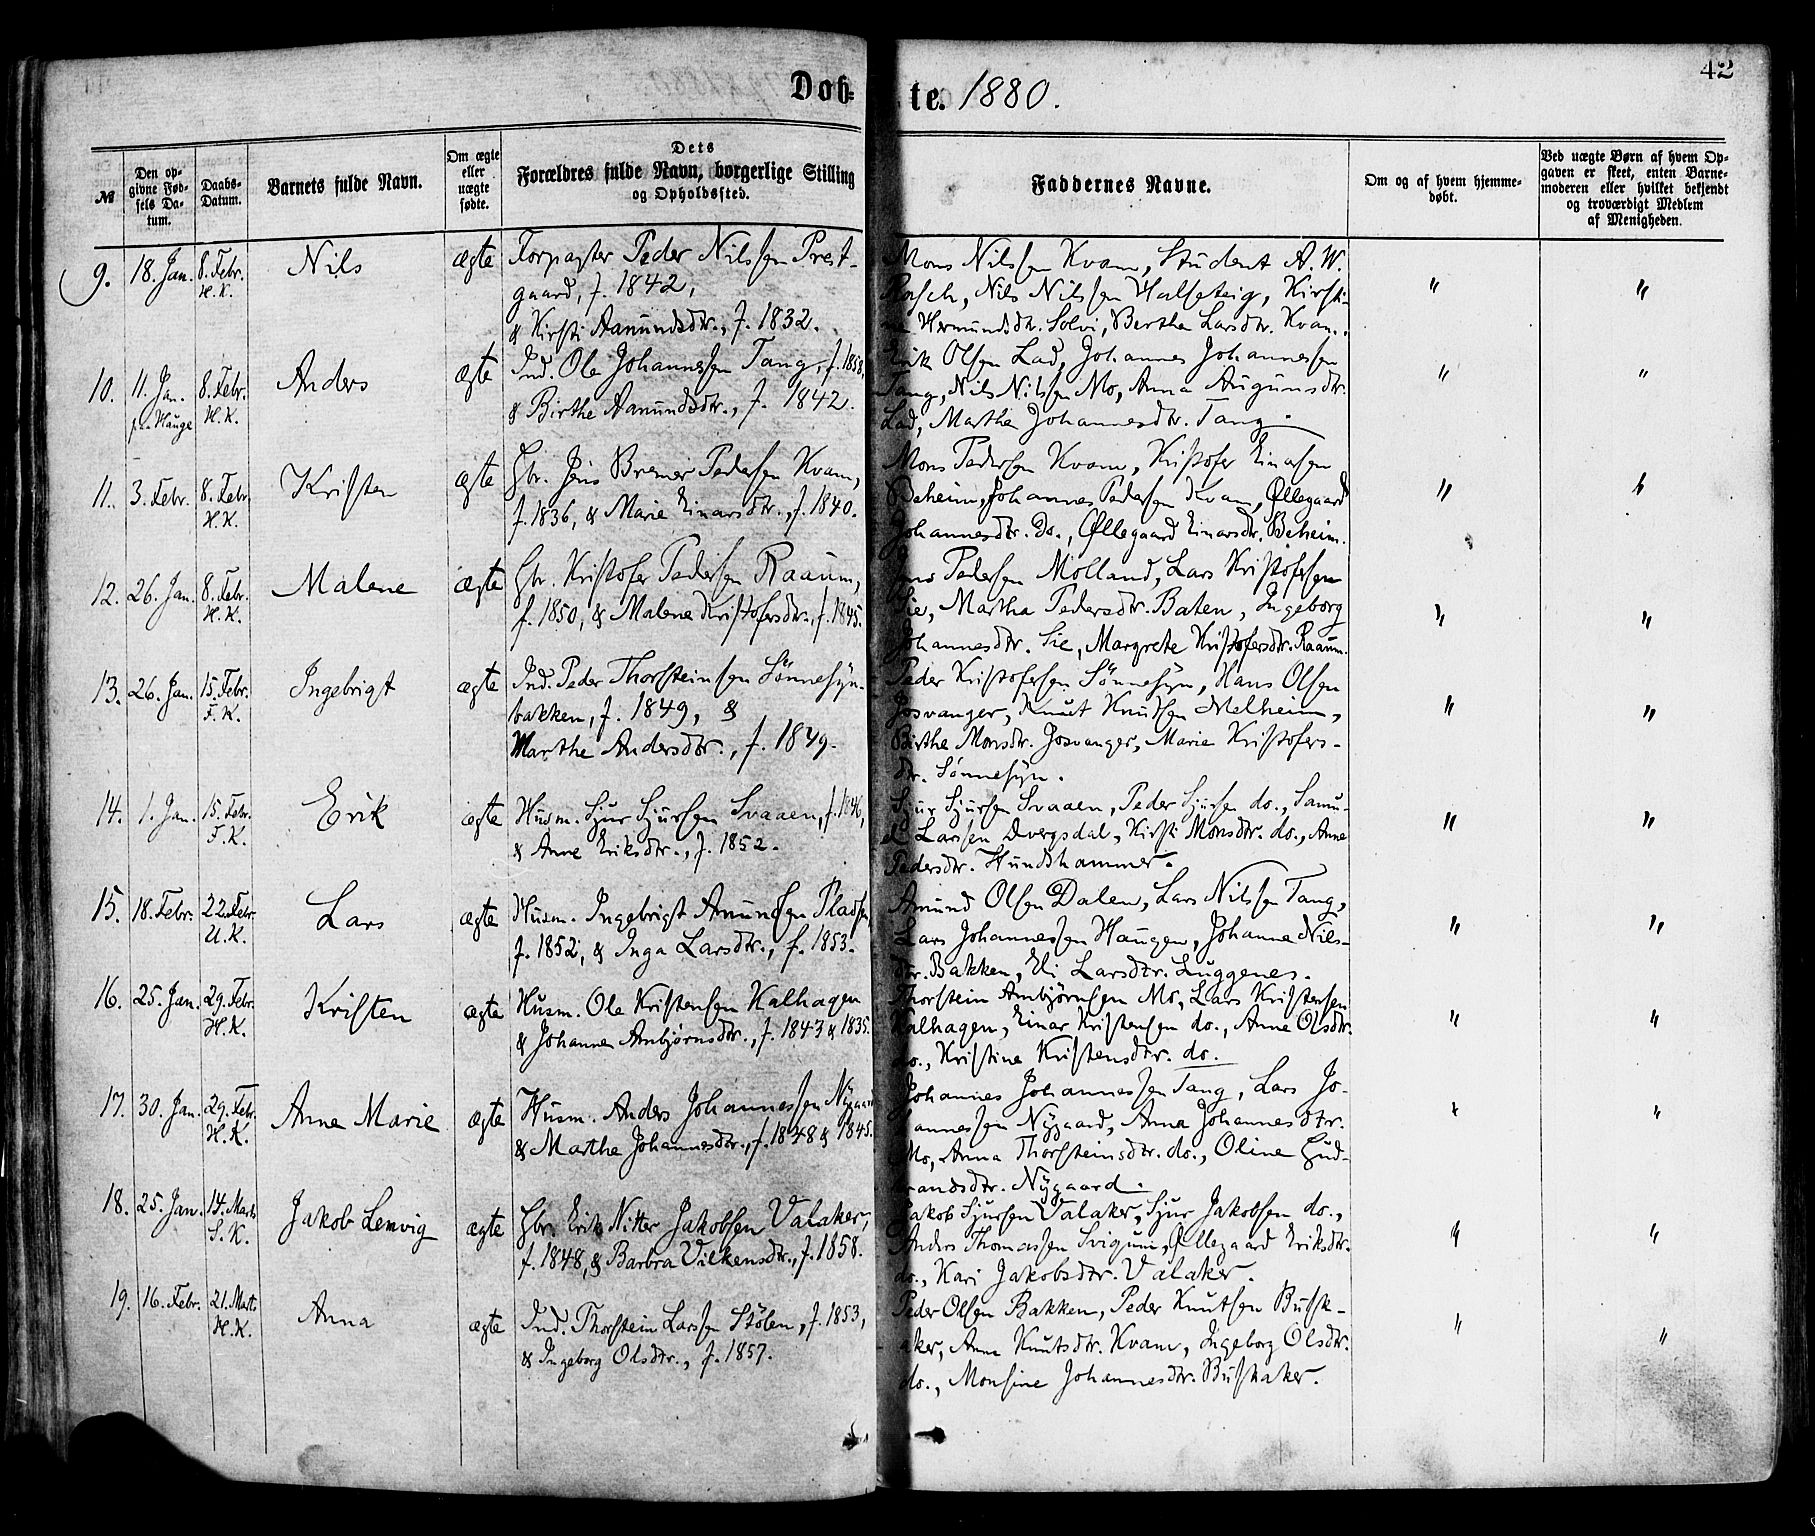 42
Døb-
te. 1880.
№
Den op-
givne Fød-
sels Da-
tum.
Daabs-
Datum.
Barnets fulde Navn.
Om ægte
eller
uægte
fødte.
Dets
Forældres fulde Navn, borgerlige Stilling
og Opholdssted.
Faddernes Navne.
Om og af hvem hjemme-
døbt.
Ved uægte Børn af hvem Op-
gaven er skeet, enten Barne-
moderen eller hvilket bekjendt
og troværdigt Medlem
af Menigheden.
9. 18. Jan. 8. Febr. H. K. Nils ægte
Forpagter Peder Nilssen Prest-
gaard, f. 1842,
& Kirsti Aamundsdtr., f. 1832.
Mons Nilssen Kvam, Student A. W.
Rosch, Nils Nilssen Halseteig, Kirsti-
Hermundsdtr. Solvi, Berthe Larsdtr. Kvam.
" "
10. 11. Jan. Hauge 8. Febr. H. K. Anders ægte
Ind. Ole Johannessen Tang, f. 1858,
& Birthe Aamundsdtr., f. 1842.
Erik Olsen Lad, Johannes Johannessen
Tang, Nils Nilsen Mo, Anna Augunsdtr.
Lad, Marthe Johannesdtr. Tang.
" "
11. 3. Febr. 8. Febr. H. K. Kristen ægte
Gbr. Jens Bremer Pedersen Kvam,
f. 1836, & Marie Einarsdtr., f. 1840.
Mons Pedersen Kvam, Kristofer Einarsen
Beheim, Johannes Pedersen Kvam, Øllegaard
Johannesdtr. Do., Øllegaard Einarsdtr. Beheim.
" "
12. 26. Jan. 8. Febr. H. K. Malene ægte
Gbr. Kristofer Pedersen Raaum,
f. 1850, & Malene Kristofersdtr., f. 1845.
Jens Pedersen Molland, Lars Kristofersen
Sie, Martha Pedersdtr. Baten, Ingeborg
Johannesdtr. Sie, Margrete Kristofersdtr. Raaum.
" "
13. 26. Jan. 15. Febr. F. K. Ingebrigt ægte
Ind. Peder Thorsteinsen Sønnesyn-
bakken, f. 1849, &
Marthe Andersdtr., f. 1849.
Peder Kristofersen Sønnesyn, Hans Olsen
Josvanger, Knut Knutsen Melheim,
Birthe Monsdtr. Josvanger, Marie Kristofers-
dtr. Sønnesyn.
" "
14. 1. Jan. 15. Febr. F. K. Erik ægte
Husm. Sjur Sjursen Svaaen, f. 1846,
& Anne Eriksdtr., f. 1852.
Sjur Sjursen Svaaen, Peder Sjursen do., Samu-
el Larsen Dvergsdal, Kirsti Monsdtr. do., Anne
Pedersdtr. Hundshammer.
" "
15. 18. Febr. 22. Febr. U. K. Lars ægte
Husm. Ingebrigt Amundsen Pladsen,
f. 1852, & Inga Larsdtr., f. 1853.
Amund Olsen Dalen, Lars Nilssen Tang,
Lars Johannessen Haugen, Johanne Nils-
dtr. Bakken, Eli Larsdtr. Luggenes.
" "
16. 25. Jan. 29. Febr. H. K. Kristen ægte
Husm. Ole Kristensen Kalhagen
& Johanne Ambjørnsdtr., f. 1843 & 1835.
Thorstein Ambjørnsen Mo, Lars Kristensen
Kalhagen, Einar Kristensen do., Anne Olsdtr.
do., Kristine Kristensdtr. do.
" "
17. 30. Jan. 29. Febr. H. K. Anne Marie ægte
Husm. Anders Johannessen Nygaard
& Marthe Johannesdtr., f. 1848 & 1845.
Johannes Johannessen Tang, Lars Jo-
hannessen Nygaard, Anna Johannesdtr.
Mo, Anna Thorsteinsdtr. do., Oline Gud-
brandsdtr. Nygaard.
" "
18. 25. Jan. 14. Marts S. K. Jakob Lemvig ægte
Gbr. Erik Nitter Jakobsen Valaker,
f. 1848, & Barbra Vilkensdtr., f. 1858.
Jakob Sjursen Valaker, Sjur Jakobsen do.,
Anders Thomassen Svigum, Øllegaard Eriksdtr.
do., Kari Jakobsdtr. Valaker.
" "
19. 16. Febr. 21. Marts H. K. Anna ægte
Ind. Thorstein Larssen Stølen, f. 1853,
& Ingeborg Olsdtr., f. 1857.
Peder Olsen Bakken, Peder Knutsen Busk-
aker, Anne Knutsdtr. Kvam, Ingeborg Olsdtr.
do., Monsine Johannesdtr. Buskaker.
" "